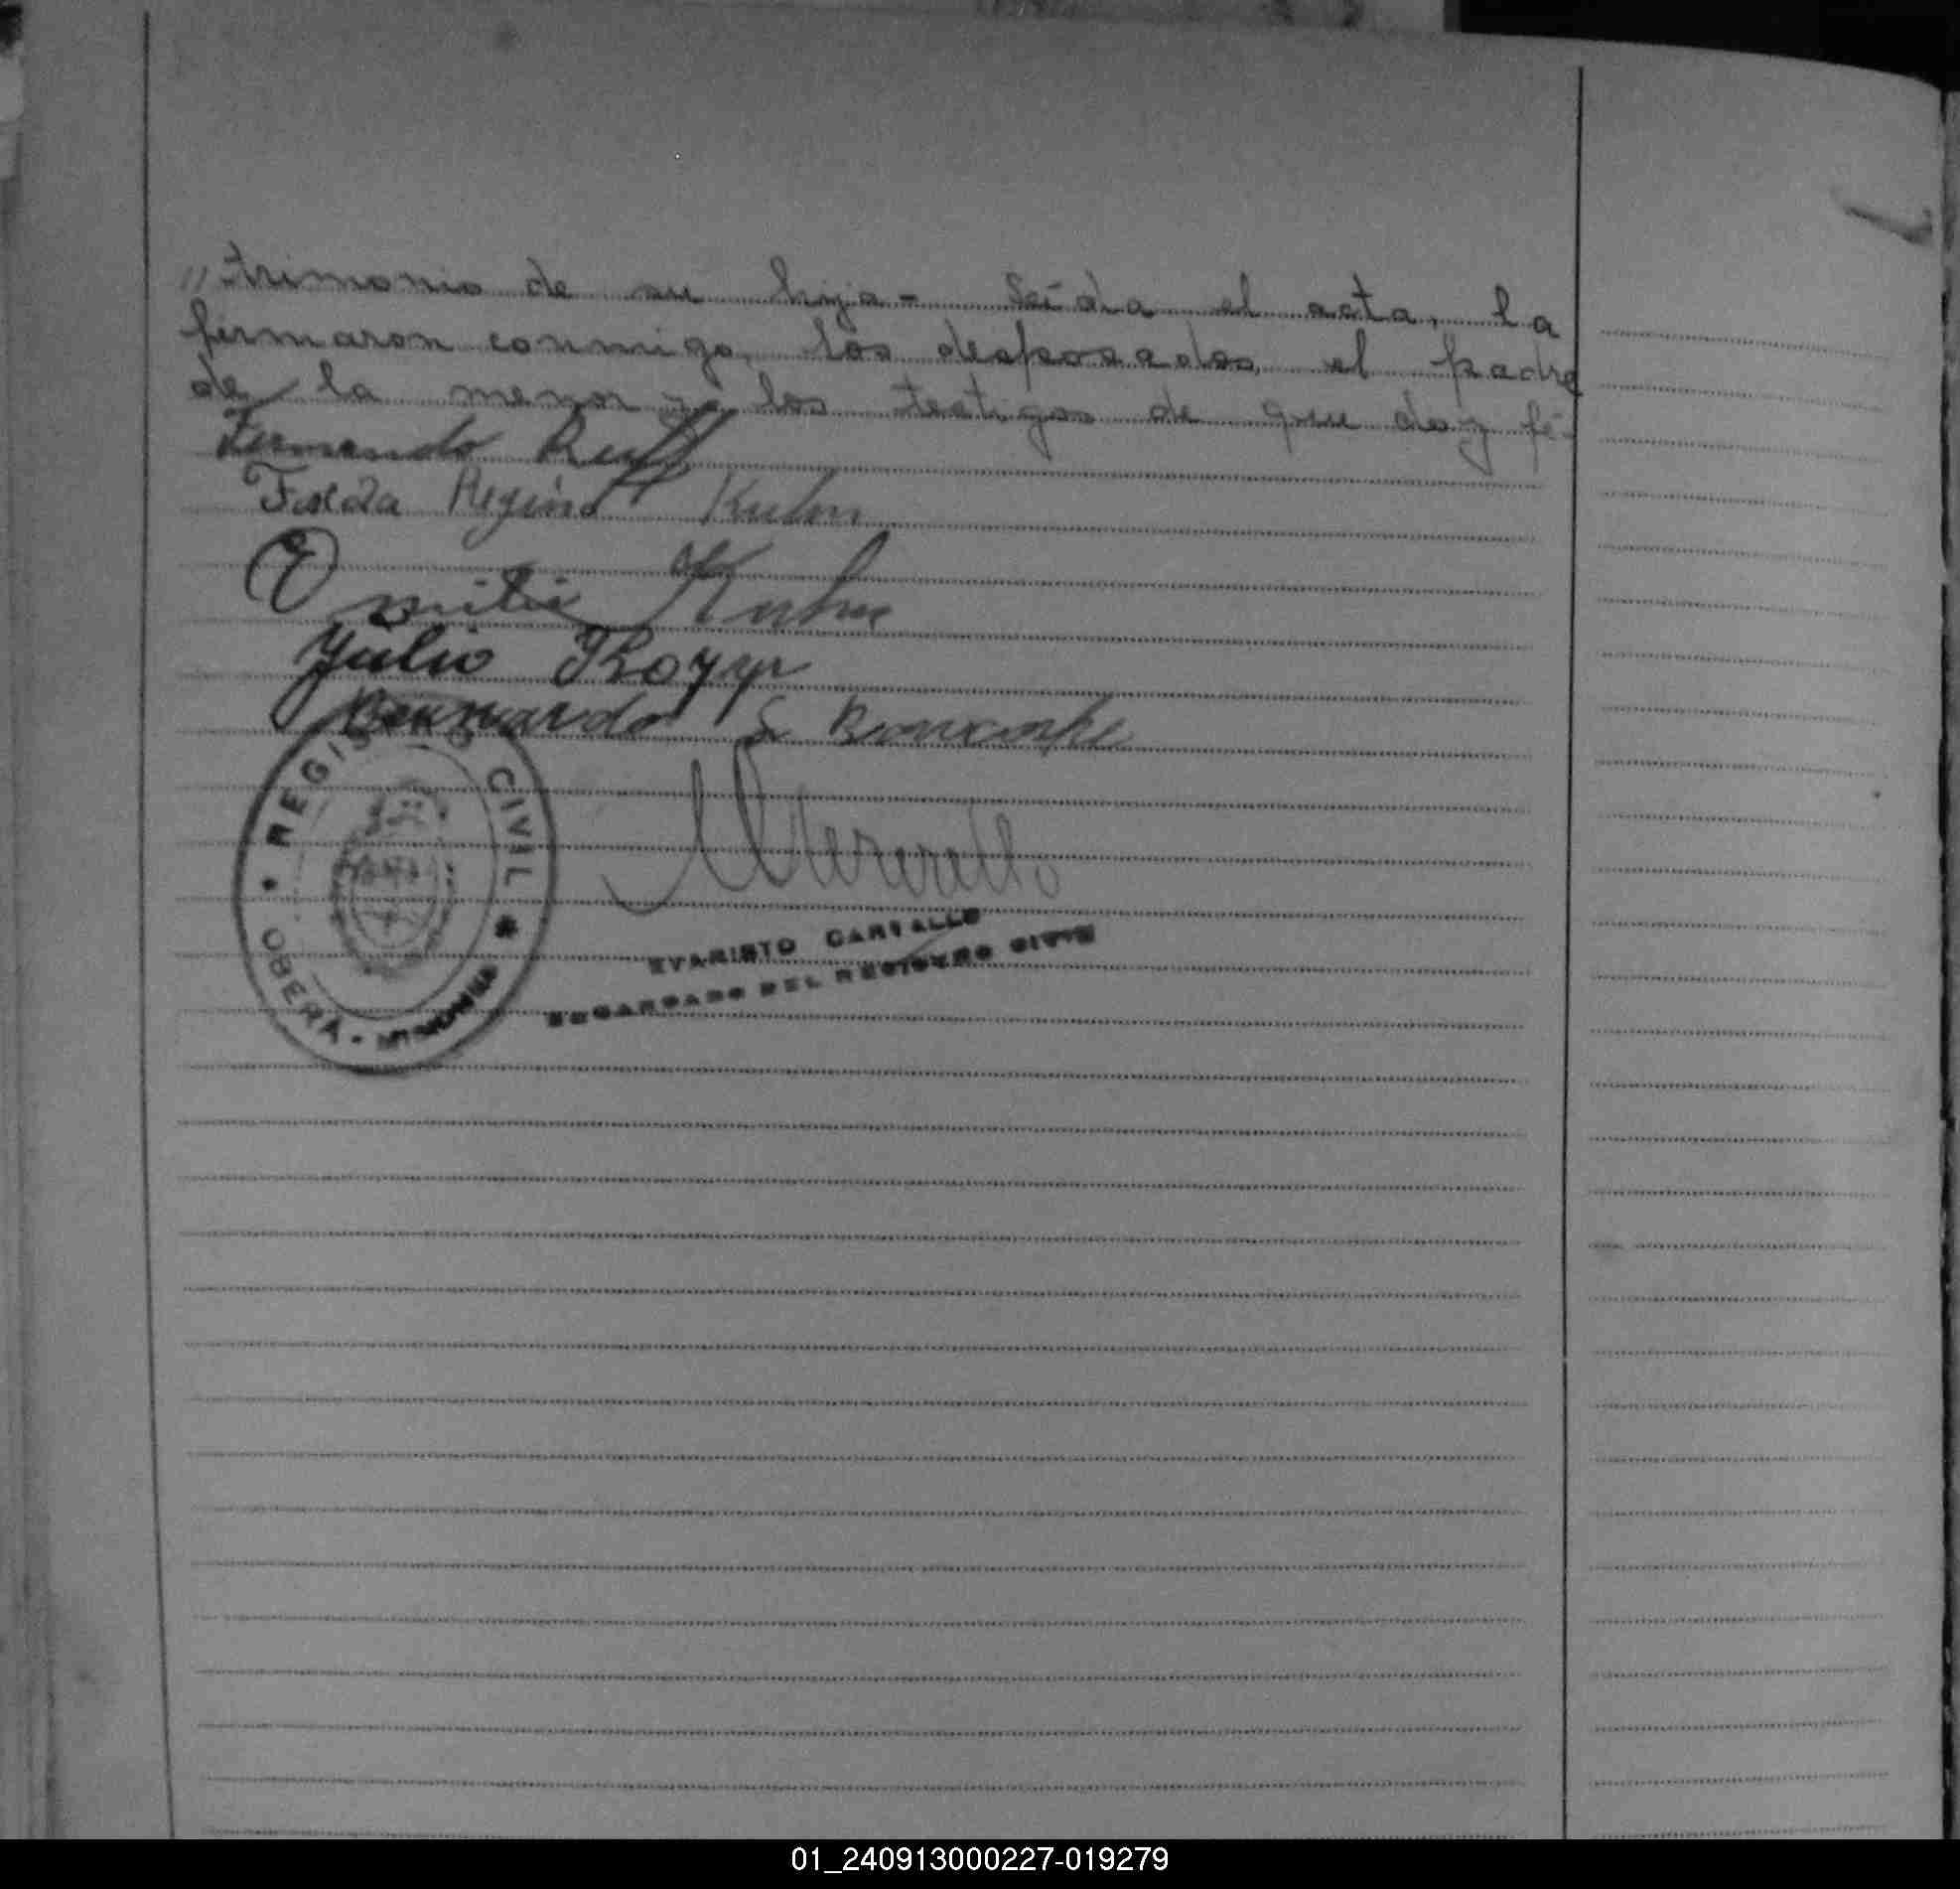 // trimonio de su hija - Leída el acta, la
firmaron conmigo, los desposados, el padre
de la menor y los testigos de que doy fé-
Fernando Ruff
Regina Kuhn
Emilio Kuhn
Julio
Bernardo
REGISTRO CIVIL
OBERÁ - MISIONES
EVARISTO CARVALLO
ENCARGADO DEL REGISTRO CIVIL
01_240913000227-019279